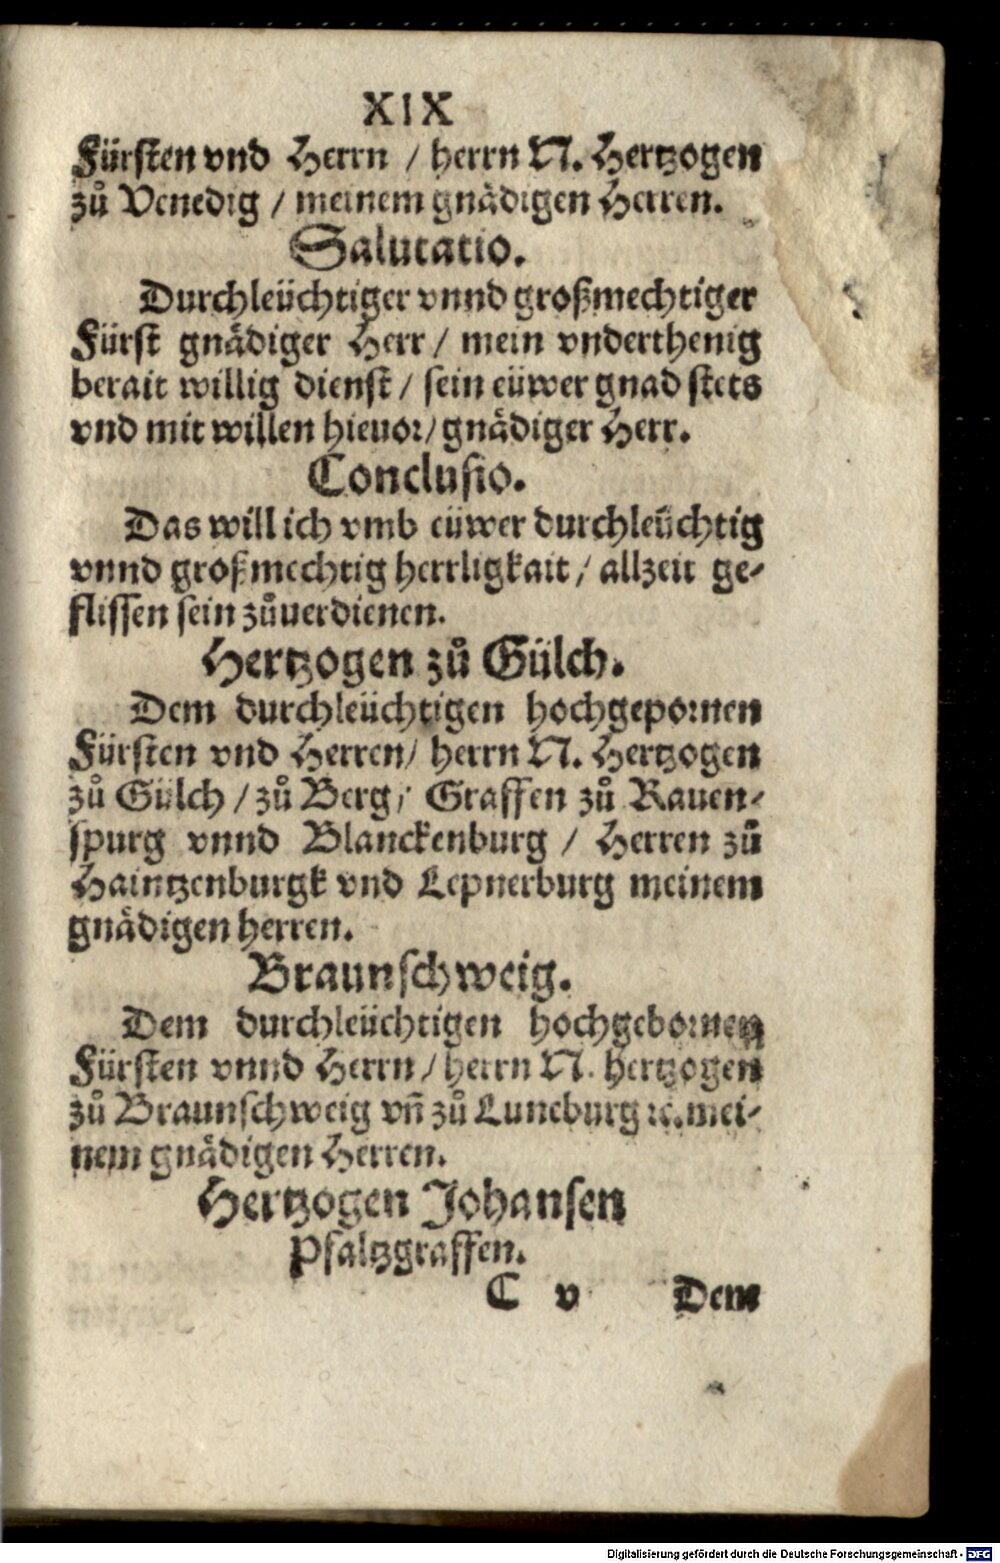 XIX
Fürsten vnd Herrn / herrn N. Hertzogen
zů Venedig / meinem gnädigen Herren.
Salutatio.
Durchleüchtiger vnnd großmechtiger
Fürst gnädiger Herr / mein vnderthenig
berait willig dienst / sein eüwer gnad stets
vnd mit willen hieuor / gnädiger Herr.
Conclusio.
Das will ich vmb eüwer durchleüchtig
vnnd großmechtig herrligkait / allzeit ge-
flissen sein zůuerdienen.
Hertzogen zů Gülch.
Dem durchleüchtigen hochgepornen
Fürsten vnd Herren / herrn N. Hertzogen
zů Gülch / zů Berg / Graffen zů Rauen-
spurg vnnd Blanckenburg / Herren zů
Haintzenburgk vnd Lepnerburg meinem
gnädigen herren.
Braunschweig.
Dem durchleüchtigen hochgebornen
Fürsten vnnd Herrn / herrn N. hertzogen
zů Braunschweig vñ zů Luneburg ꝛc. mei-
nem gnädigen Herren.
Hertzogen Johansen
Pfaltzgraffen.
C v Dem
Digitalisierung gefördert durch die Deutsche Forschungsgemeinschaft - DFG